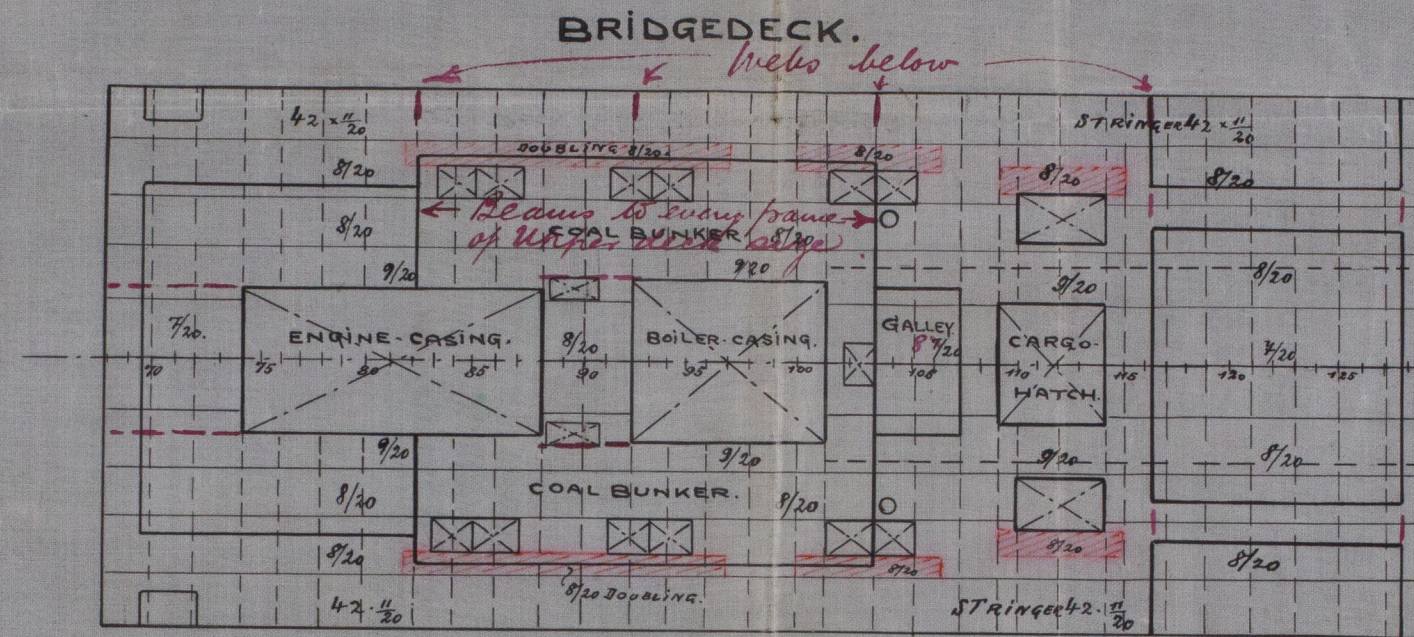 BRIDGEDECK.
Webs below
42 × 11/20
STRINGER 42 × 11/20
DOUBLING 8/20.
8/20
8/20
8/20
8/20
8/20
← Beams to every frame →
of Upper deck
COAL BUNKER 8/20
9/20
9/20
9/20
8/20
7/20.
ENGINE-CASING.
8/20
BOILER-CASING.
GALLEY
7/20
CARGO-
HATCH.
7/20
70 75 80 85 90 95 100 105 110 115 120 125
9/20
9/20
9/20
8/20
8/20
COAL BUNKER.
8/20
8/20
8/20
8/20
8/20
8/20 DOUBLING.
42 · 11/20
STRINGER 42 · 11/20